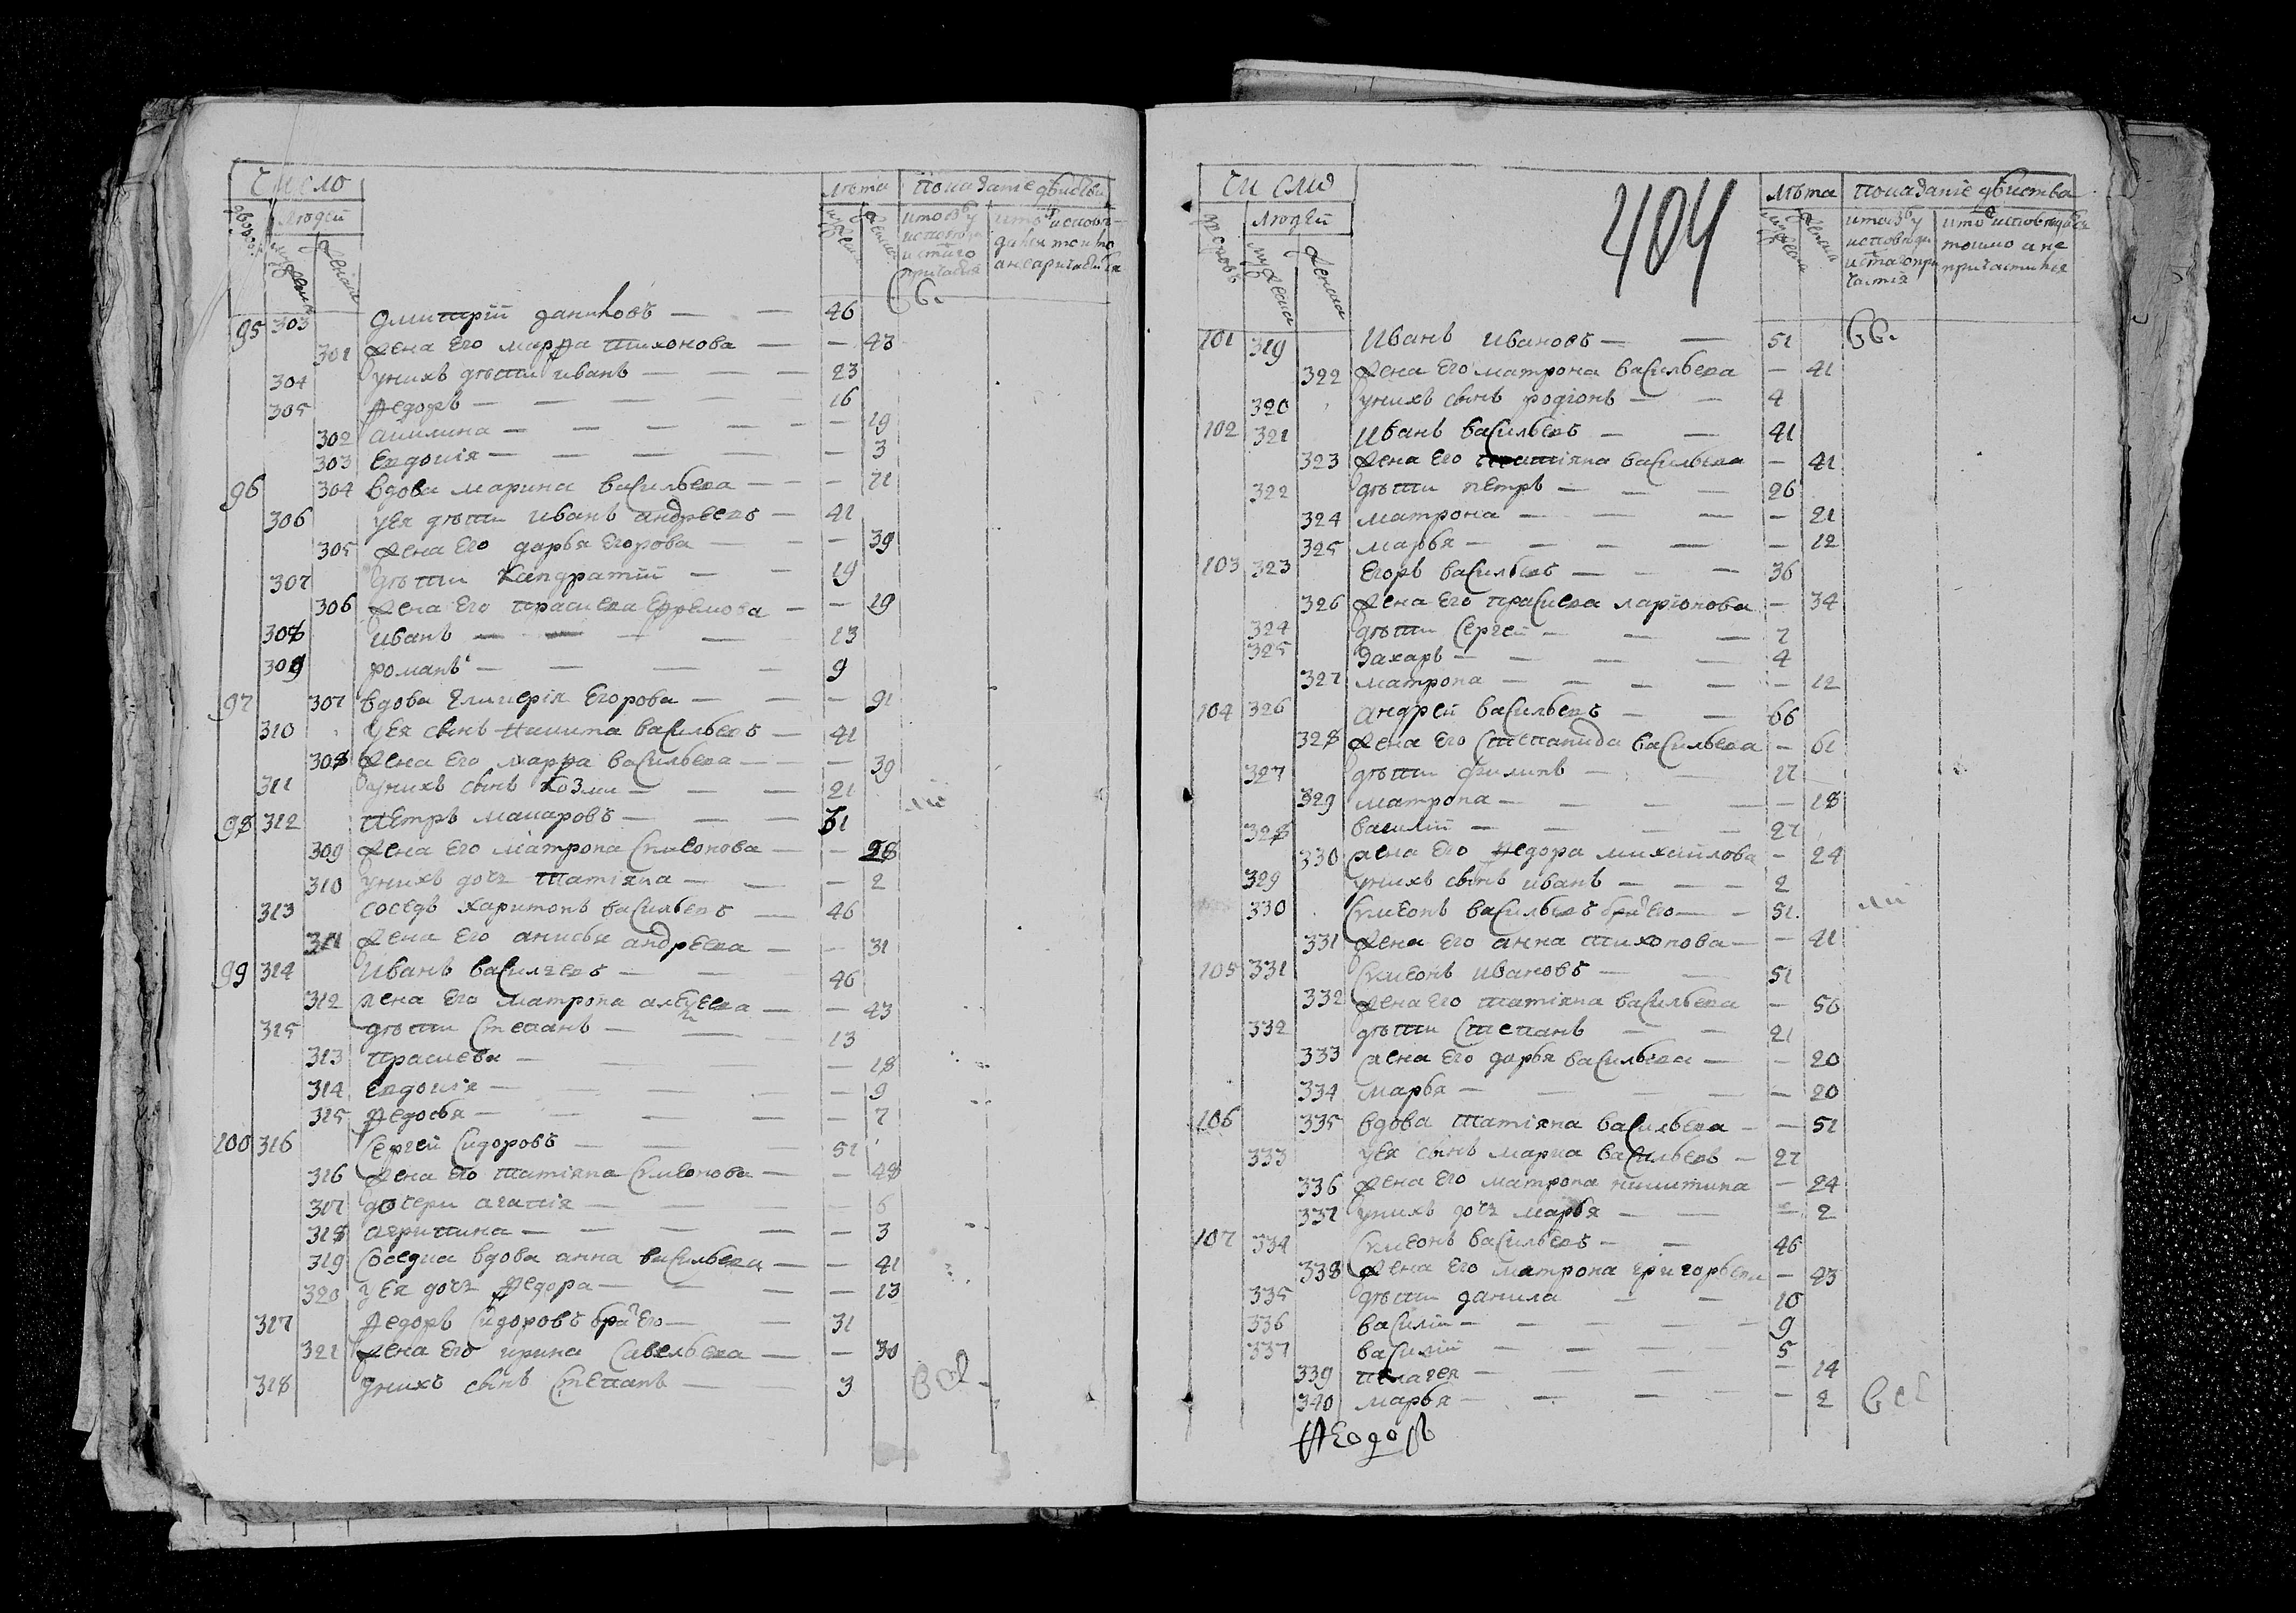 Число
Люди
Лѣта
показание дѣйства
дворовъ
мужеска
женска
95 303 Дмитрий даниловъ — — 46
301 жена Его марѳа тихонова — — 43
304 унихъ дѣти иванъ — — — 23
305 Ѳедоръ — — — — — 16
302 акилина — — — — — 19
303 Евдокия — — — — — 3
96 304 вдова марина васильева — — — 71
306 уея дѣти иванъ андреевъ — 41
305 жена Его дарья Егорова — — — 39
307 дѣти кандратий — — 19
306 жена Его прасковя Ефремова — — 19
308 иванъ — — — — 13
309 романъ — — — — 9
97 307 вдова глик ерія Егорова — — — 91
310 уея сынъ никита васильевъ — 41
308 жена Его марѳа васильева — — — 39
311 унихъ сынъ козма — — — 21
98 312 петръ макаровъ — — — 31
309 жена Его матрона симеонова — — 28
310 унихъ дочь татіяна — — — 2
313 соседъ харитонъ васильевъ — 46
311 жена Его анисья андреева — — 31
99 314 иванъ василевъ — — — 46
312 жена Его матрона алексеева — — 43
315 дѣти степанъ — — — 13
313 прасковя — — — 18
314 Евдокия — — — — — 9
315 Ѳедосья — — — — — 7
100 316 сергей сидоровъ — — — 51
316 жена Его татіяна симеонова — — 48
317 дочери агапія — — — — 6
318 агрипина — — — — — 3
319 соседка вдова анна васильева — — 41
320 уея дочь Ѳедора — — — — 13
317 Ѳедоръ сидоровъ братъ его — — 31
321 жена Его ирина савельева — — 30
318 унихъ сынъ степанъ — — 3
404
Число
Людей
Лѣта
показаніе дѣйства
дворовъ
мужеска
женска
101 319 иванъ ивановъ — — 51
322 жена Его матрона васильева — 41
320 унихъ сынъ родіонъ — — 4
102 321 иванъ васильевъ — — 41
323 жена Его татіяна васильева — 41
322 дѣти петръ — — — 26
324 матрона — — — — 21
325 марья — — — — — 12
103 323 Егоръ васильевъ — — — 36
326 жена Его прасковя ларіонова — 34
324 дѣти сергей — — — 7
325 захаръ — — — — 4
327 матрона — — — — — 12
104 326 андрей васильевъ — — 66
328 жена Его степанида васильева — 61
327 дѣти филипъ — — 17
329 матрона — — — — — 18
328 василий — — — — 27
330 жена Его Ѳедора михайлова — 24
329 унихъ сынъ иванъ — — — 2
330 симеонъ васильевъ братъ его — — 51
331 жена Его анна тихонова — — 41
105 331 симеонъ ивановъ — — 51
332 жена Его татіяна васильева — 50
332 дѣти степанъ — — 21
333 жена Его дарья васильева — — 20
334 марья — — — — 20
106 335 вдова татіяна васильева — — 51
333 уея сынъ марка васильевъ — 27
336 жена Его матрона никитина — 24
337 унихъ дочь марья — — — 2
107 334 симеонъ васильевъ — — 46
338 жена Его матрона григорьева — 43
335 дѣти данила — — 10
336 василий — — — — — 9
337 василий — — — — 5
339 пелагея — — — — — 14
340 марья — — — — — 2
Ѳеодоръ